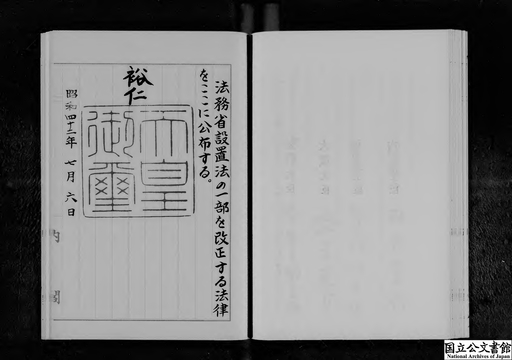 法務省設置法の一部を改正する法律
をここに公布する。
裕仁
天皇
御璽
昭和四十二年七月六日
内閣
国立公文書館
National Archives of Japan